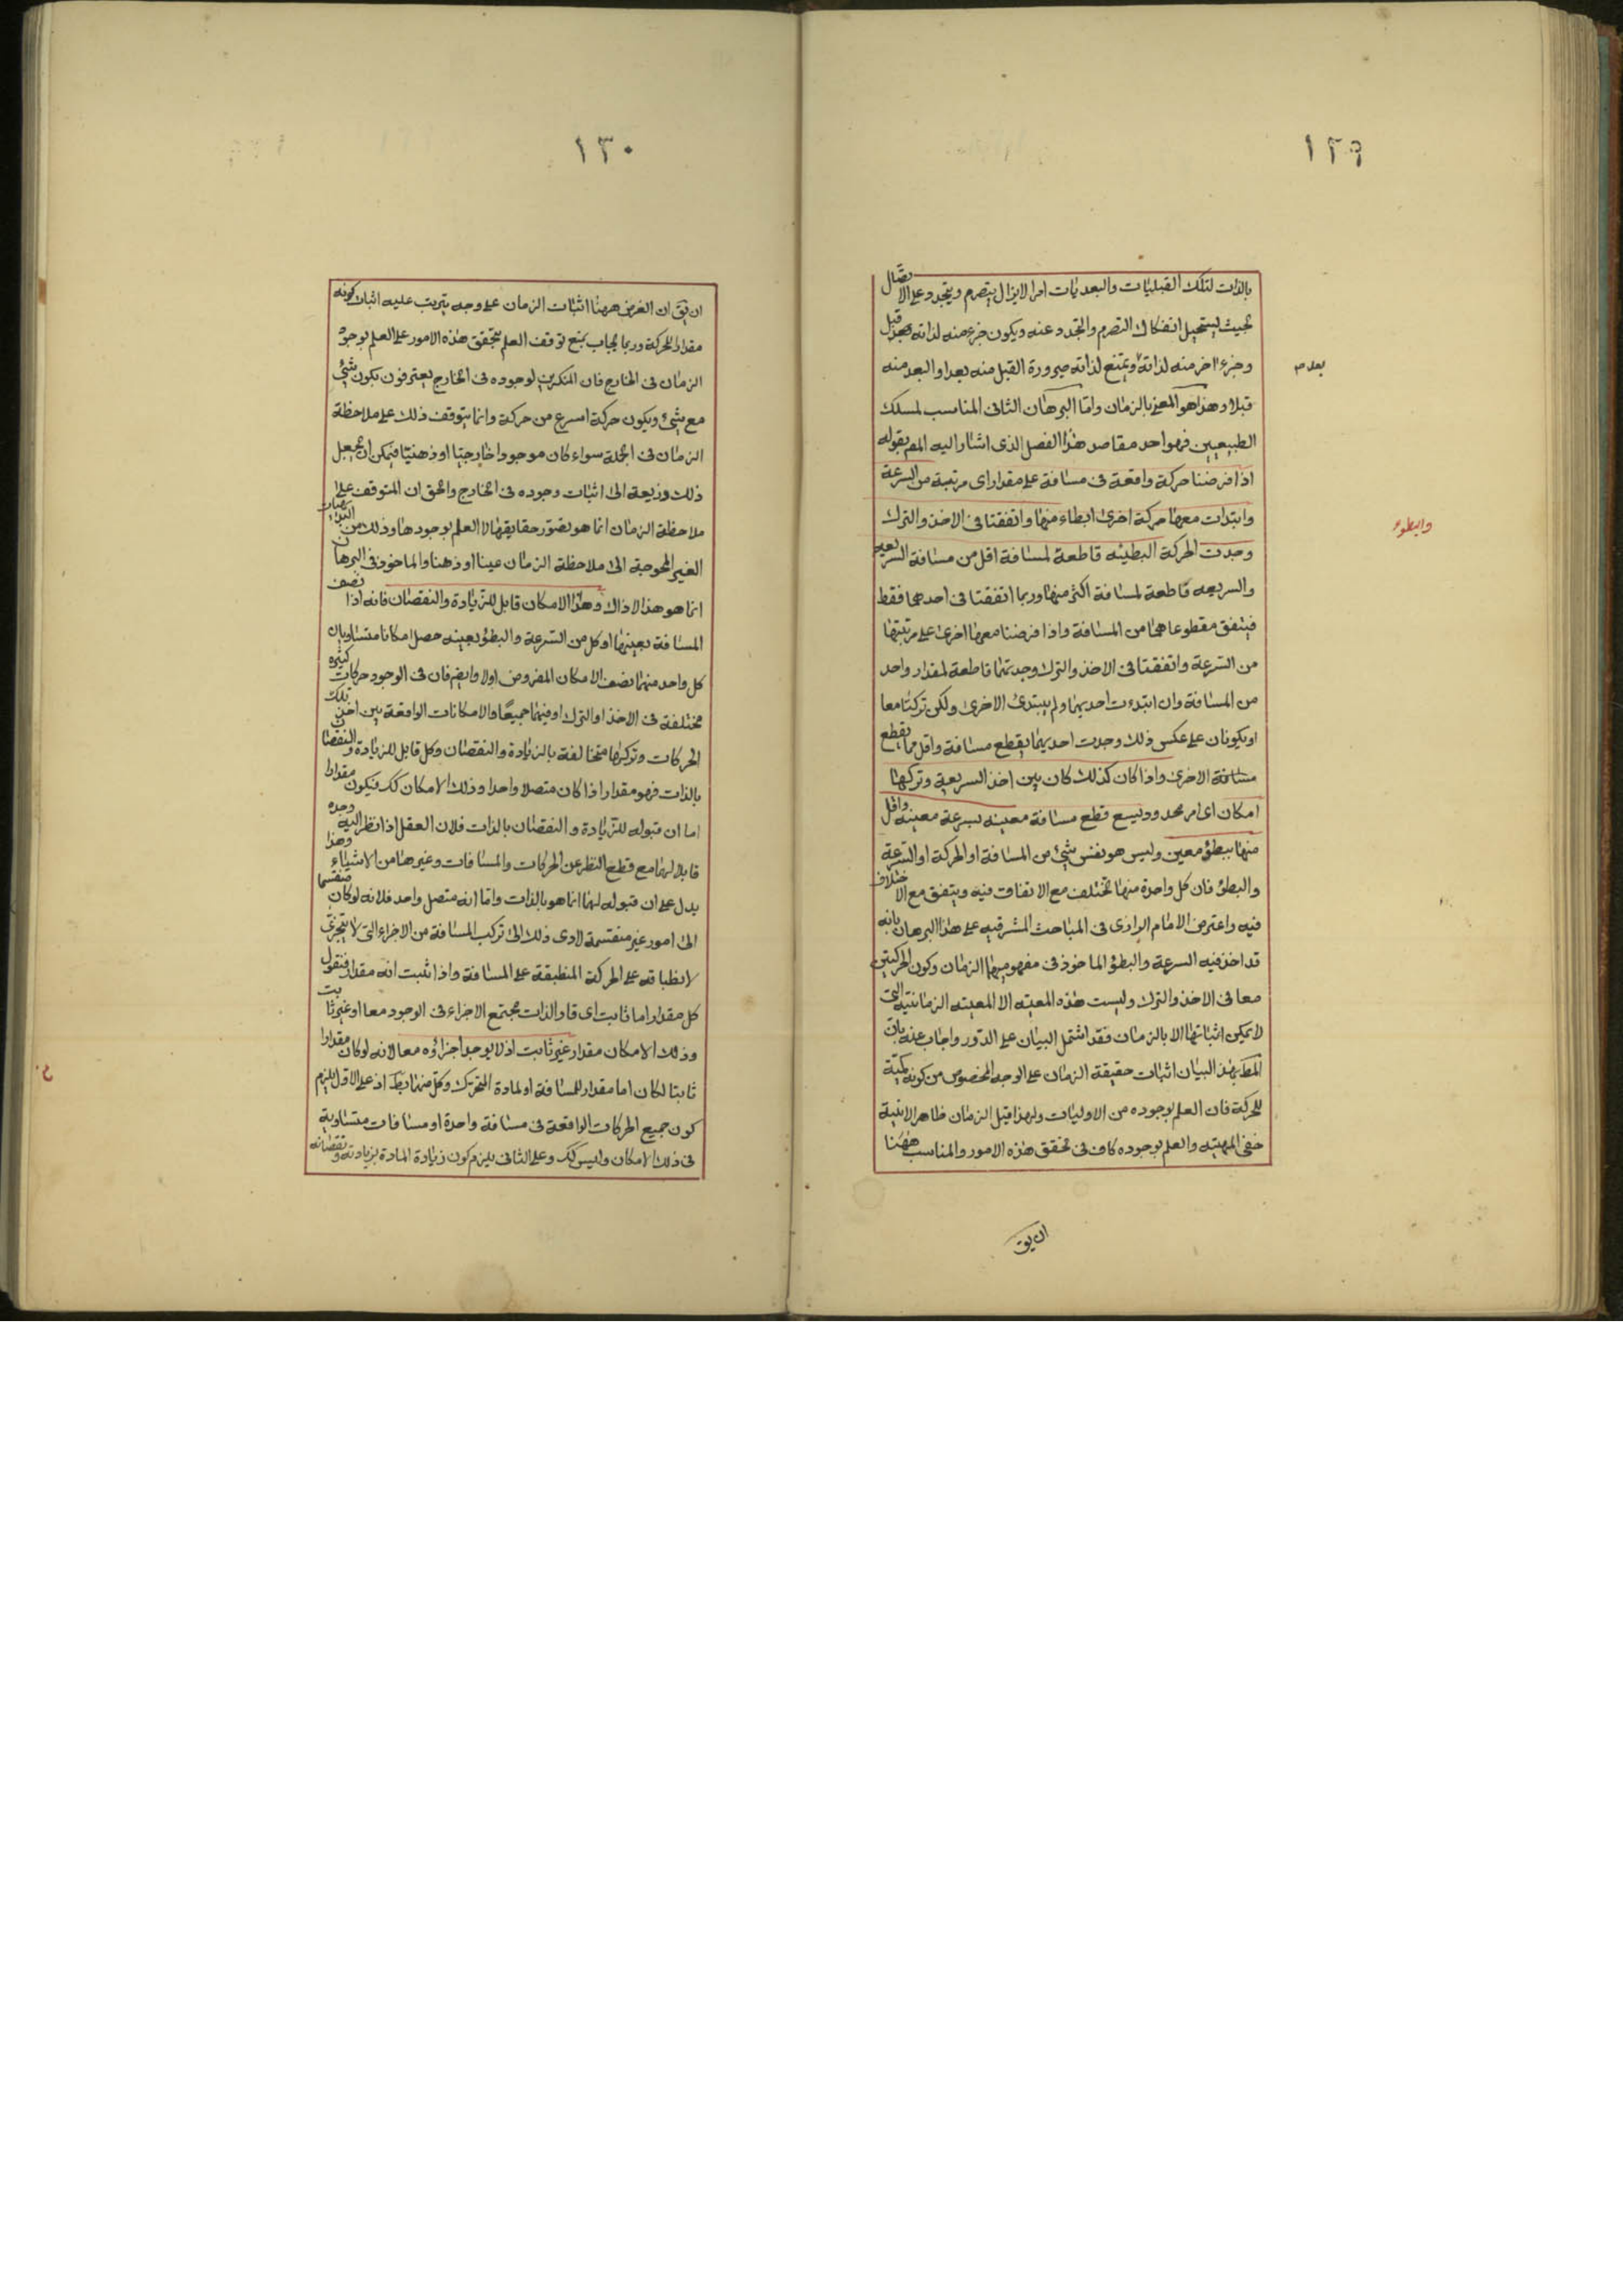 ١٢٩
بالذات لتلك القبليات والبعديات امرا لا يزال يتصرم ويتجدد على الاتصال
بحيث يستحيل انفكاك التصرم والتجدد عنه ويكون جزء منه لذاته قبل
وجزء اخر منه لذاته ويمتنع لذاته صيرورة القبل منه بعدا والبعد منه
بعد م
قبلا وهذا هو المعنى بالزمان واما البرهان الثانى المناسب لمسلك
الطبيعيين فهو احد مقاصد هذا الفصل الذى اشار اليه المص بقوله
اذا فرضنا حركة واقعة فى مسافة على مقدار اى مرتبة من السرعة
وابتدات معها حركة اخرى ابطاء منها واتفقتا فى الاخذ والترك
وابطوء
وجدت الحركة البطيئه قاطعة لمسافة اقل من مسافة السريعه
والسريعه قاطعة لمسافة اكثر منها وربما اتفقتا فى احدهما فقط
فيتفق مقطوعاهما من المسافة واذا فرضنا معها اخرى على مرتبتها
من السرعة واتفقتا فى الاخذ والترك وجدتهما قاطعة لمقدار واحد
من المسافة وان ابتدءت احديهما ولم يبتدئ الاخرى ولكن تركتا معا
او يكونان على عكس ذلك وجدت احديهما يقطع مسافة واقل مما يقطع
مسافة الاخرى واذا كان كذلك كان بين اخذ السريعه وتركها
امكان اى امر محدود يسع قطع مسافة معينه بسرعة معينه واقل
منها ببطؤ معين وليس هو نفس شئ من المسافة او الحركة او السرعة
والبطؤ فان كل واحدة منها تختلف مع الاتفاق فيه ويتفق مع الاختلاف
فيه واعترض الامام الرازى فى المباحث المشرقيه على هذا البرهان بانه
قد اخذ فيه السرعة والبطؤ الماخوذ فى مفهوميهما الزمان وكون الحركتين
معا فى الاخذ والترك وليست هذه المعيه الا المعيه الزمانيه التى
لا يمكن اثباتها الا بالزمان فقد اشتمل البيان على الدور واجاب عنه بان
المط بهذ البيان اثبات حقيقة الزمان على الوجه المخصوص من كونه كمية
للحركة فان العلم بوجوده من الاوليات ولهذا قيل الزمان ظاهر الانية
خفى المهيه والعلم بوجوده كاف فى تحقق هذه الامور والمناسب ههنا
ان يق
١٣٠
ان يق ان الغرض ههنا اثبات الزمان على وجه يترتب عليه اثبات كونه
مقدارا للحركة وربما يجاب بمنع توقف العلم بتحقق هذه الامور على العلم بوجود
الزمان فى الخارج فان المنكرين لوجوده فى الخارج يعترفون بكون شئ
مع شئ وبكون حركة اسرع من حركة وانما يتوقف ذلك على ملاحظة
الزمان فى الجملة سواء كان موجودا خارجيا او ذهنيا فيمكن ان يجعل
ذلك وذريعة الى اثبات وجوده فى الخارج والحق ان المتوقف على
ملاحظة الزمان انما هو تصور حقايقها لا العلم بوجودها وذلك من
الغير المحوجة الى ملاحظة الزمان عينا او ذهنا والماخوذ فى البرهان
انما هو هذا لا ذاك وهذا الامكان قابل للزيادة والنقصان فانه اذا نصف
المسافة بعينها او كل من السرعة والبطؤ بعينه حصل امكانا متساويان
كل واحد منهما نصف الامكان المفروض اولا وايضم فان فى الوجود حركات كثيرة
مختلفة فى الاخذ او الترك او فيهما جميعا والامكانات الواقعة بين اخذ تلك
الحركات وتركها متخالفة بالزيادة والنقصان وكل قابل للزيادة والنقصان
بالذات فهو مقدار اذا كان متصلا واحدا وذلك الامكان كك فيكون مقدارا
اما ان قبوله للزيادة والنقصان بالذات فلان العقل اذا نظر اليه وجده
قابلا لهما مع قطع النظر عن الحركات والمسافات وغيرهما من الاشياء وهذا
يدل على ان قبوله لهما انما هو بالذات واما انه متصل واحد فلانه لو كان منقسما
الى امور غير منقسمة لادى ذلك الى تركب المسافة من الاجزاء التى لا يتجزى
لانطباقه على الحركة المنطبقة على المسافة واذا ثبت انه مقدار فنقول
كل مقدار اما ثابت اى قار الذات مجتمع الاجزاء فى الوجود معا او غير ثابت
وذلك الامكان مقدار غير ثابت اذ لا يوجد اجزاؤه معا لانه لو كان مقدارا
ثابتا لكان اما مقدار للمسافة او لمادة المتحرك وكل منهما بط اذ على الاول يلزم
كون جميع الحركات الواقعة فى مسافة واحدة او مسافات متساوية
فى ذلك الامكان وليس كك وعلى الثانى يلزم كون زيادة المادة بزيادته ونقصانه